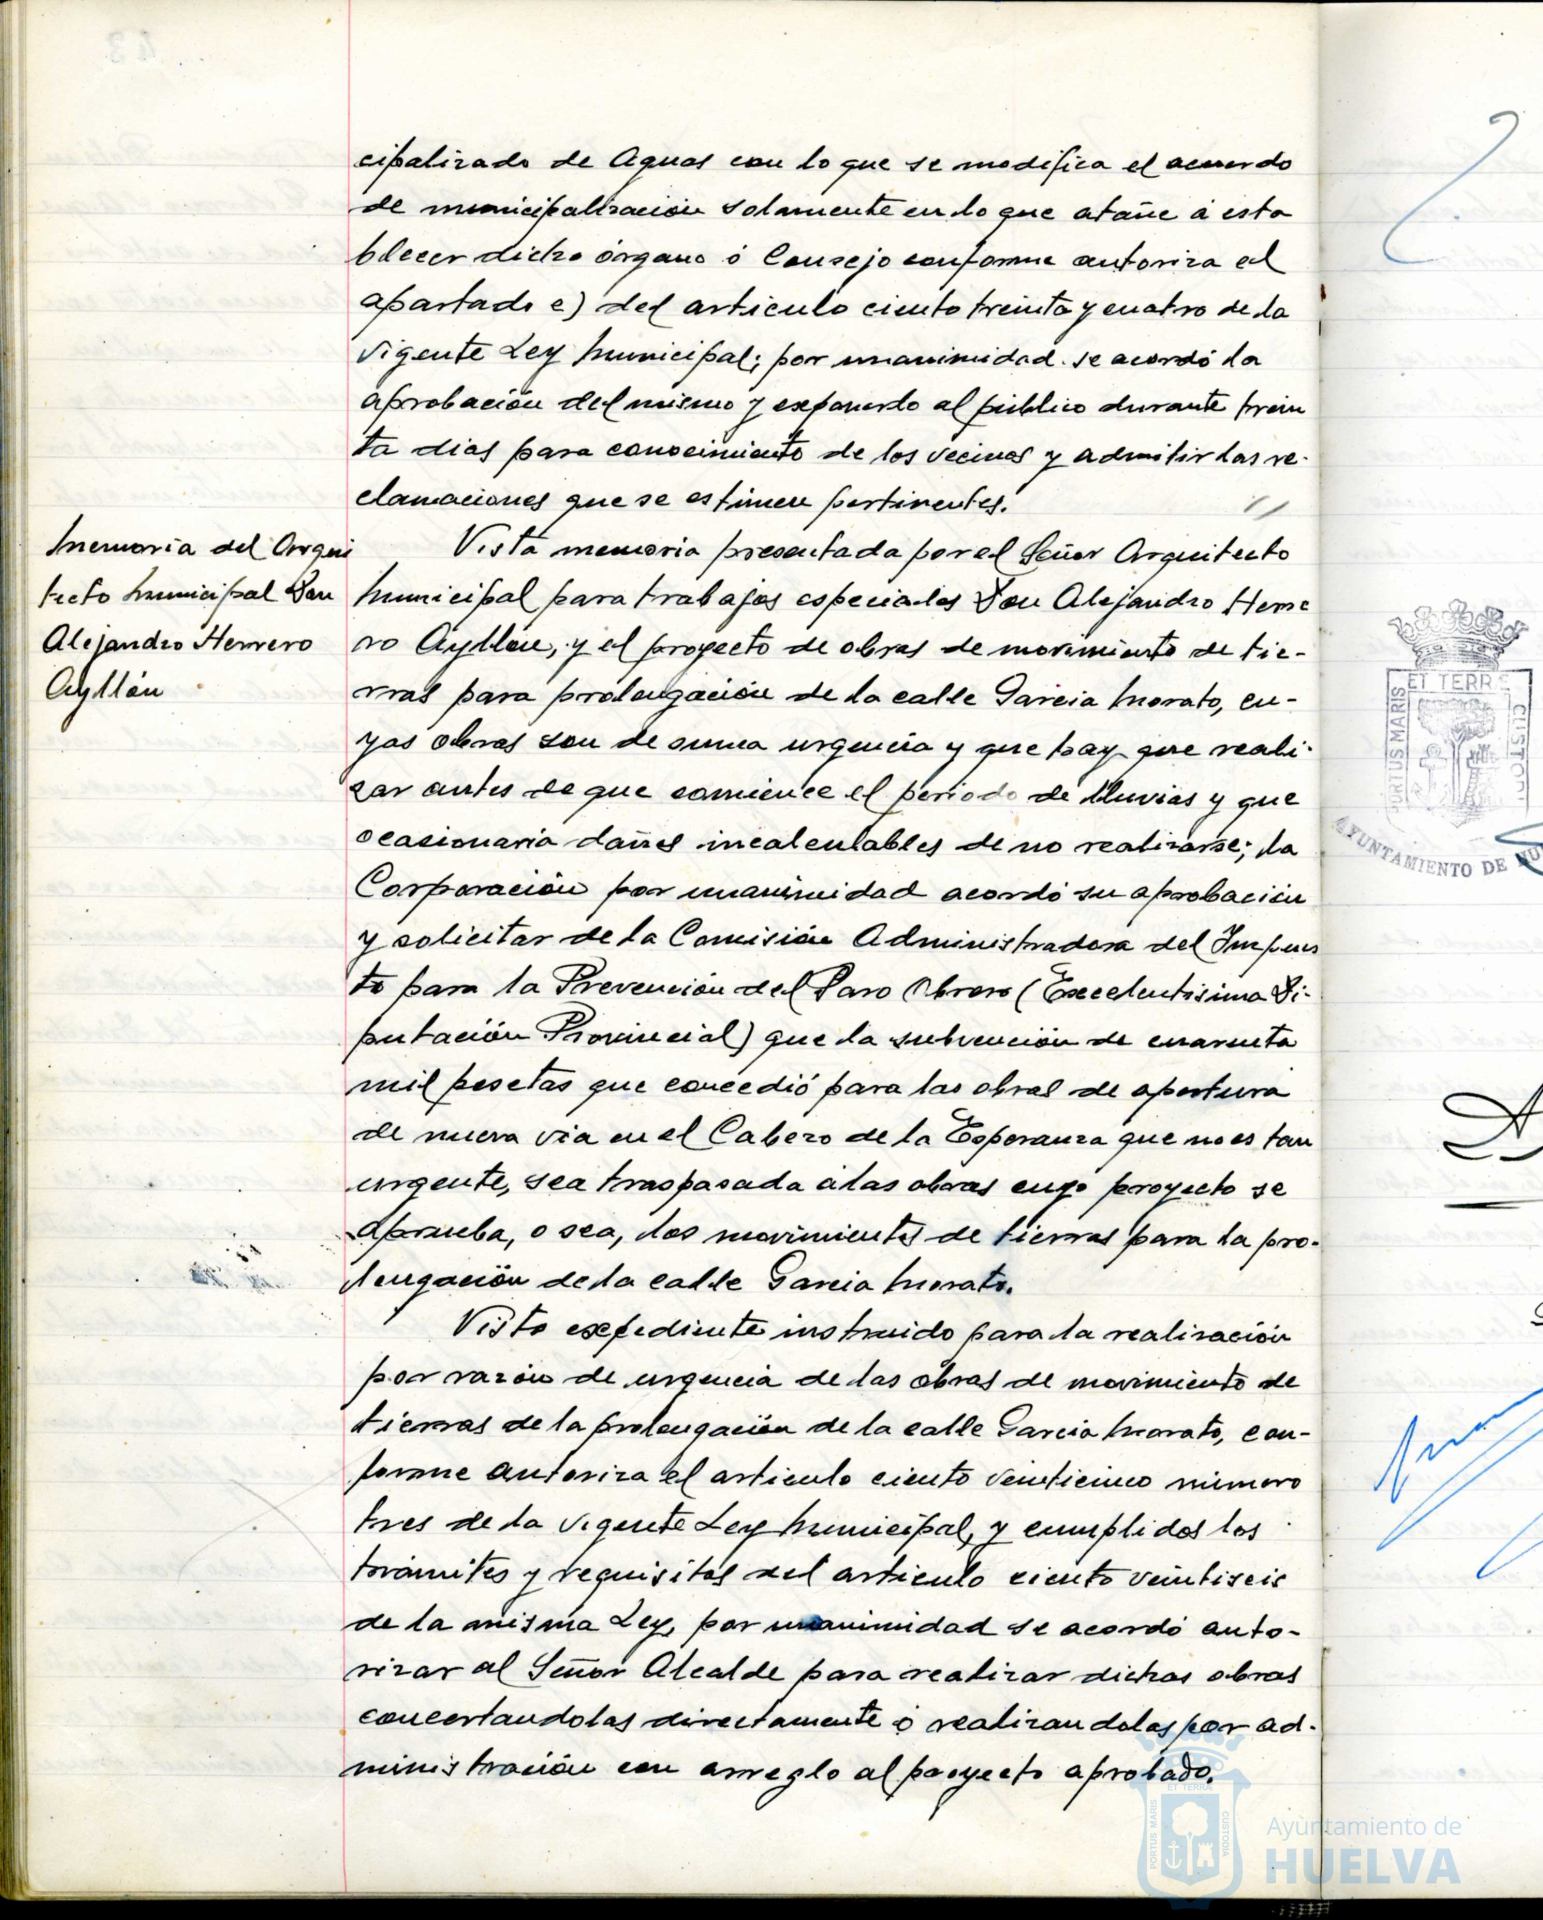 cipalizado de Aguas con lo que se modifica el acuerdo
de municipalización solamente en lo que atañe á esta
blecer dicho órgano ó Consejo conforme autoriza el
apartado e) del articulo ciento treinta y cuatro de la
vigente Ley Municipal; por unanimidad se acordó la
aprobación del mismo y exponerlo al público durante trein
ta dias para conocimiento de los vecinos y admitir las re-
clamaciones que se estimen pertinentes.
Memoria del Arqui
tecto Municipal Don
Alejandro Herrero
Ayllón
Vista memoria presentada por el Señor Arquitecto
Municipal para trabajos especiales Don Alejandro Herre
ro Ayllón, y el proyecto de obras de movimiento de tie-
rras para prolongación de la calle Garcia Morato, cu-
yas obras son de suma urgencia y que hay que reali-
zar antes de que comience el periodo de lluvias y que
ocasionaria daños incalculables de no realizarse; la
Corporación por unanimidad acordó su aprobación
y solicitar de la Comisión Administradora del Impues
to para la Prevención del Paro Obrero (Excelentisima Di-
putación Provincial) que la subvención de cuarenta
mil pesetas que concedió para las obras de apertura
de nueva via en el Cabezo de la Esperanza que no es tan
urgente, sea traspasada á las obras cuyo proyecto se
aprueba, o sea, los movimientos de tierras para la pro-
longación de la calle Garcia Morato.
Visto expediente instruido para la realización
por razón de urgencia de las obras de movimiento de
tierras de la prolongación de la calle Garcia Morato, con-
forme autoriza el articulo ciento veinticinco número
tres de la vigente Ley Municipal, y cumplidos los
trámites y requisitos del articulo ciento veintiseis
de la misma Ley, por unanimidad se acordó auto-
rizar al Señor Alcalde para realizar dichas obras
concertandolas directamente ó realizandolas por ad-
ministración con arreglo al proyecto aprobado.
ET TERR
PORTUS MARIS
CUSTO
AYUNTAMIENTO DE HU
ET TERRA
PORTUS MARIS
CUSTODIA
Ayuntamiento de
HUELVA